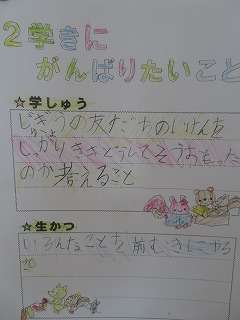 2学きに
がんばりたいこと
☆学しゅう
じぎょうの友だちのいけんを
しっかりききどうしてそうおもった
のか考えること
☆生かつ
いろんなことを前むきにやる